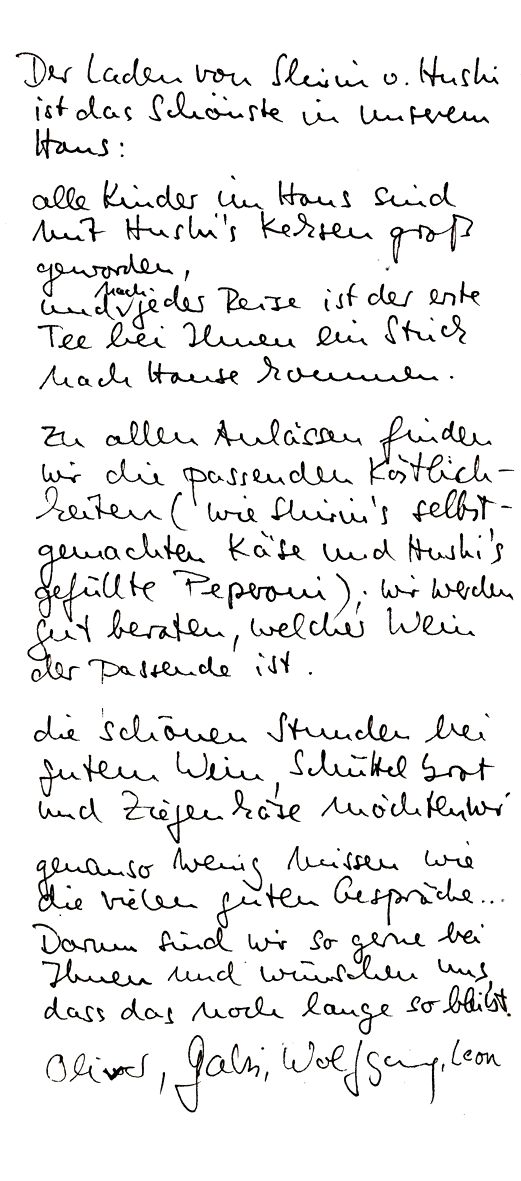 Der Laden von Shirin u. Hushi
ist das Schönste in unserem
Haus:
alle Kinder im Haus sind
mit Hushi's Keksen groß
geworden,
und nach jeder Reise ist der erste
Tee bei Ihnen ein Stück
nach Hause kommen.
Zu allen Anlässen finden
wir die passenden Köstlich-
keiten (wie Shirin's selbst-
gemachten Käse und Hushi's
gefüllte Peperoni); wir werden
gut beraten, welcher Wein
der passende ist.
die schönen Stunden bei
gutem Wein, Schüttelbrot
und Ziegenkäse möchten wir
genauso wenig missen wie
die vielen guten Gespräche...
Darum sind wir so gerne bei
Ihnen und wünschen uns,
dass das noch lange so bleibt.
Oliver, Gabi, Wolfgang, Leon